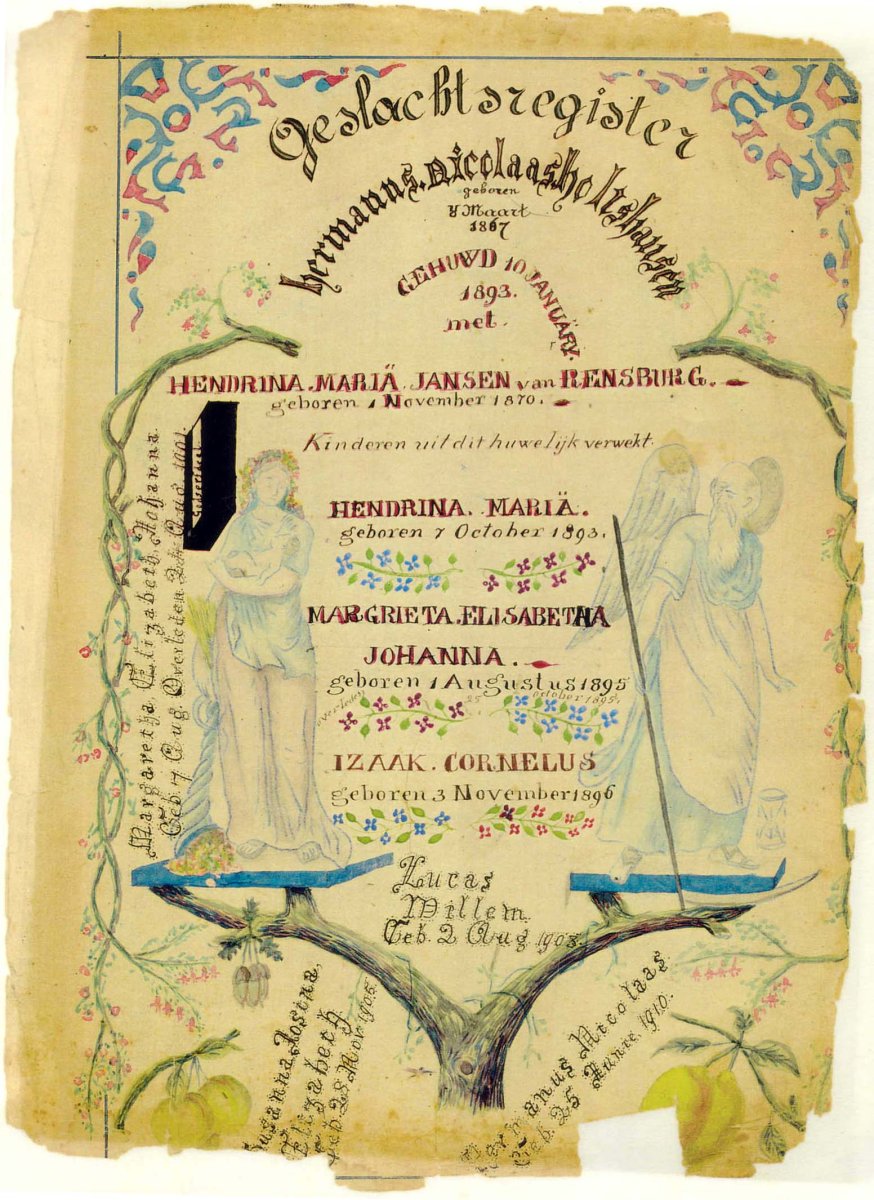 Geslachtsregister
hermanus. nicolaas holtshausen
geboren
8 Maart
1867
GEHUWD 10 JANUÄRY.
1893.
met.
HENDRINA. MARIÄ. JANSEN van RENSBURG.
geboren 1 November 1870.
Kinderen uit dit huwelijk verwekt.
HENDRINA. MARIÄ.
geboren 7 October 1893.
MARGRIETA. ELISABETHA
JOHANNA.
geboren 1 Augustus 1895
overleden 25 october 1895.
IZAAK. CORNELUS
geboren 3 November 1896
Margaretha Elizabeth Johanna.
Geb. 7 Aug. Overleden Aug 1901.
Lucas
Willem
Geb. 2 Aug 1903.
Susanna Josina,
Elizabeth
Geb. 28 Nov. 1905.
Hermanus Nicolaas.
Geb. 25 Junie. 1910.